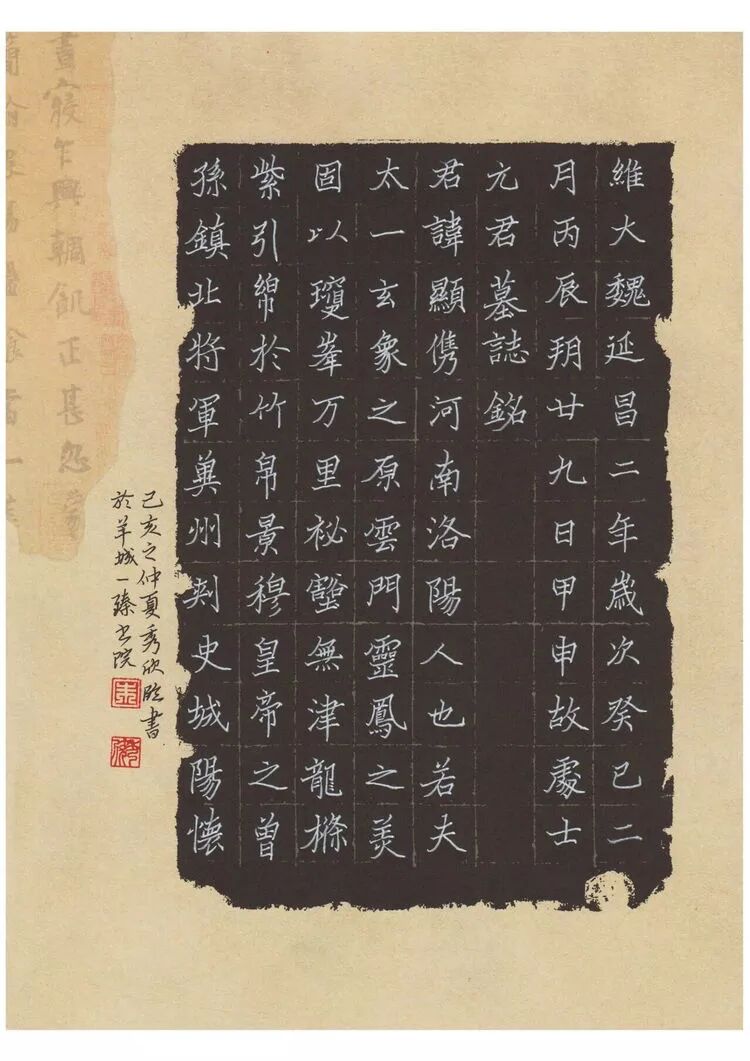 維大魏延昌二年歲次癸巳二
月丙辰朔廿九日甲申故處士
元君墓誌銘
君諱顯儁河南洛陽人也若夫
太一玄象之原雲門靈鳳之美
固以瓊峯万里祕壑無津龍樤
紫引綿於竹帛景穆皇帝之曾
孫鎮北將軍冀州刺史城陽懷
己亥之仲夏秀欣臨書
於羊城一臻書院
晝寢乍興輖飢正甚忽